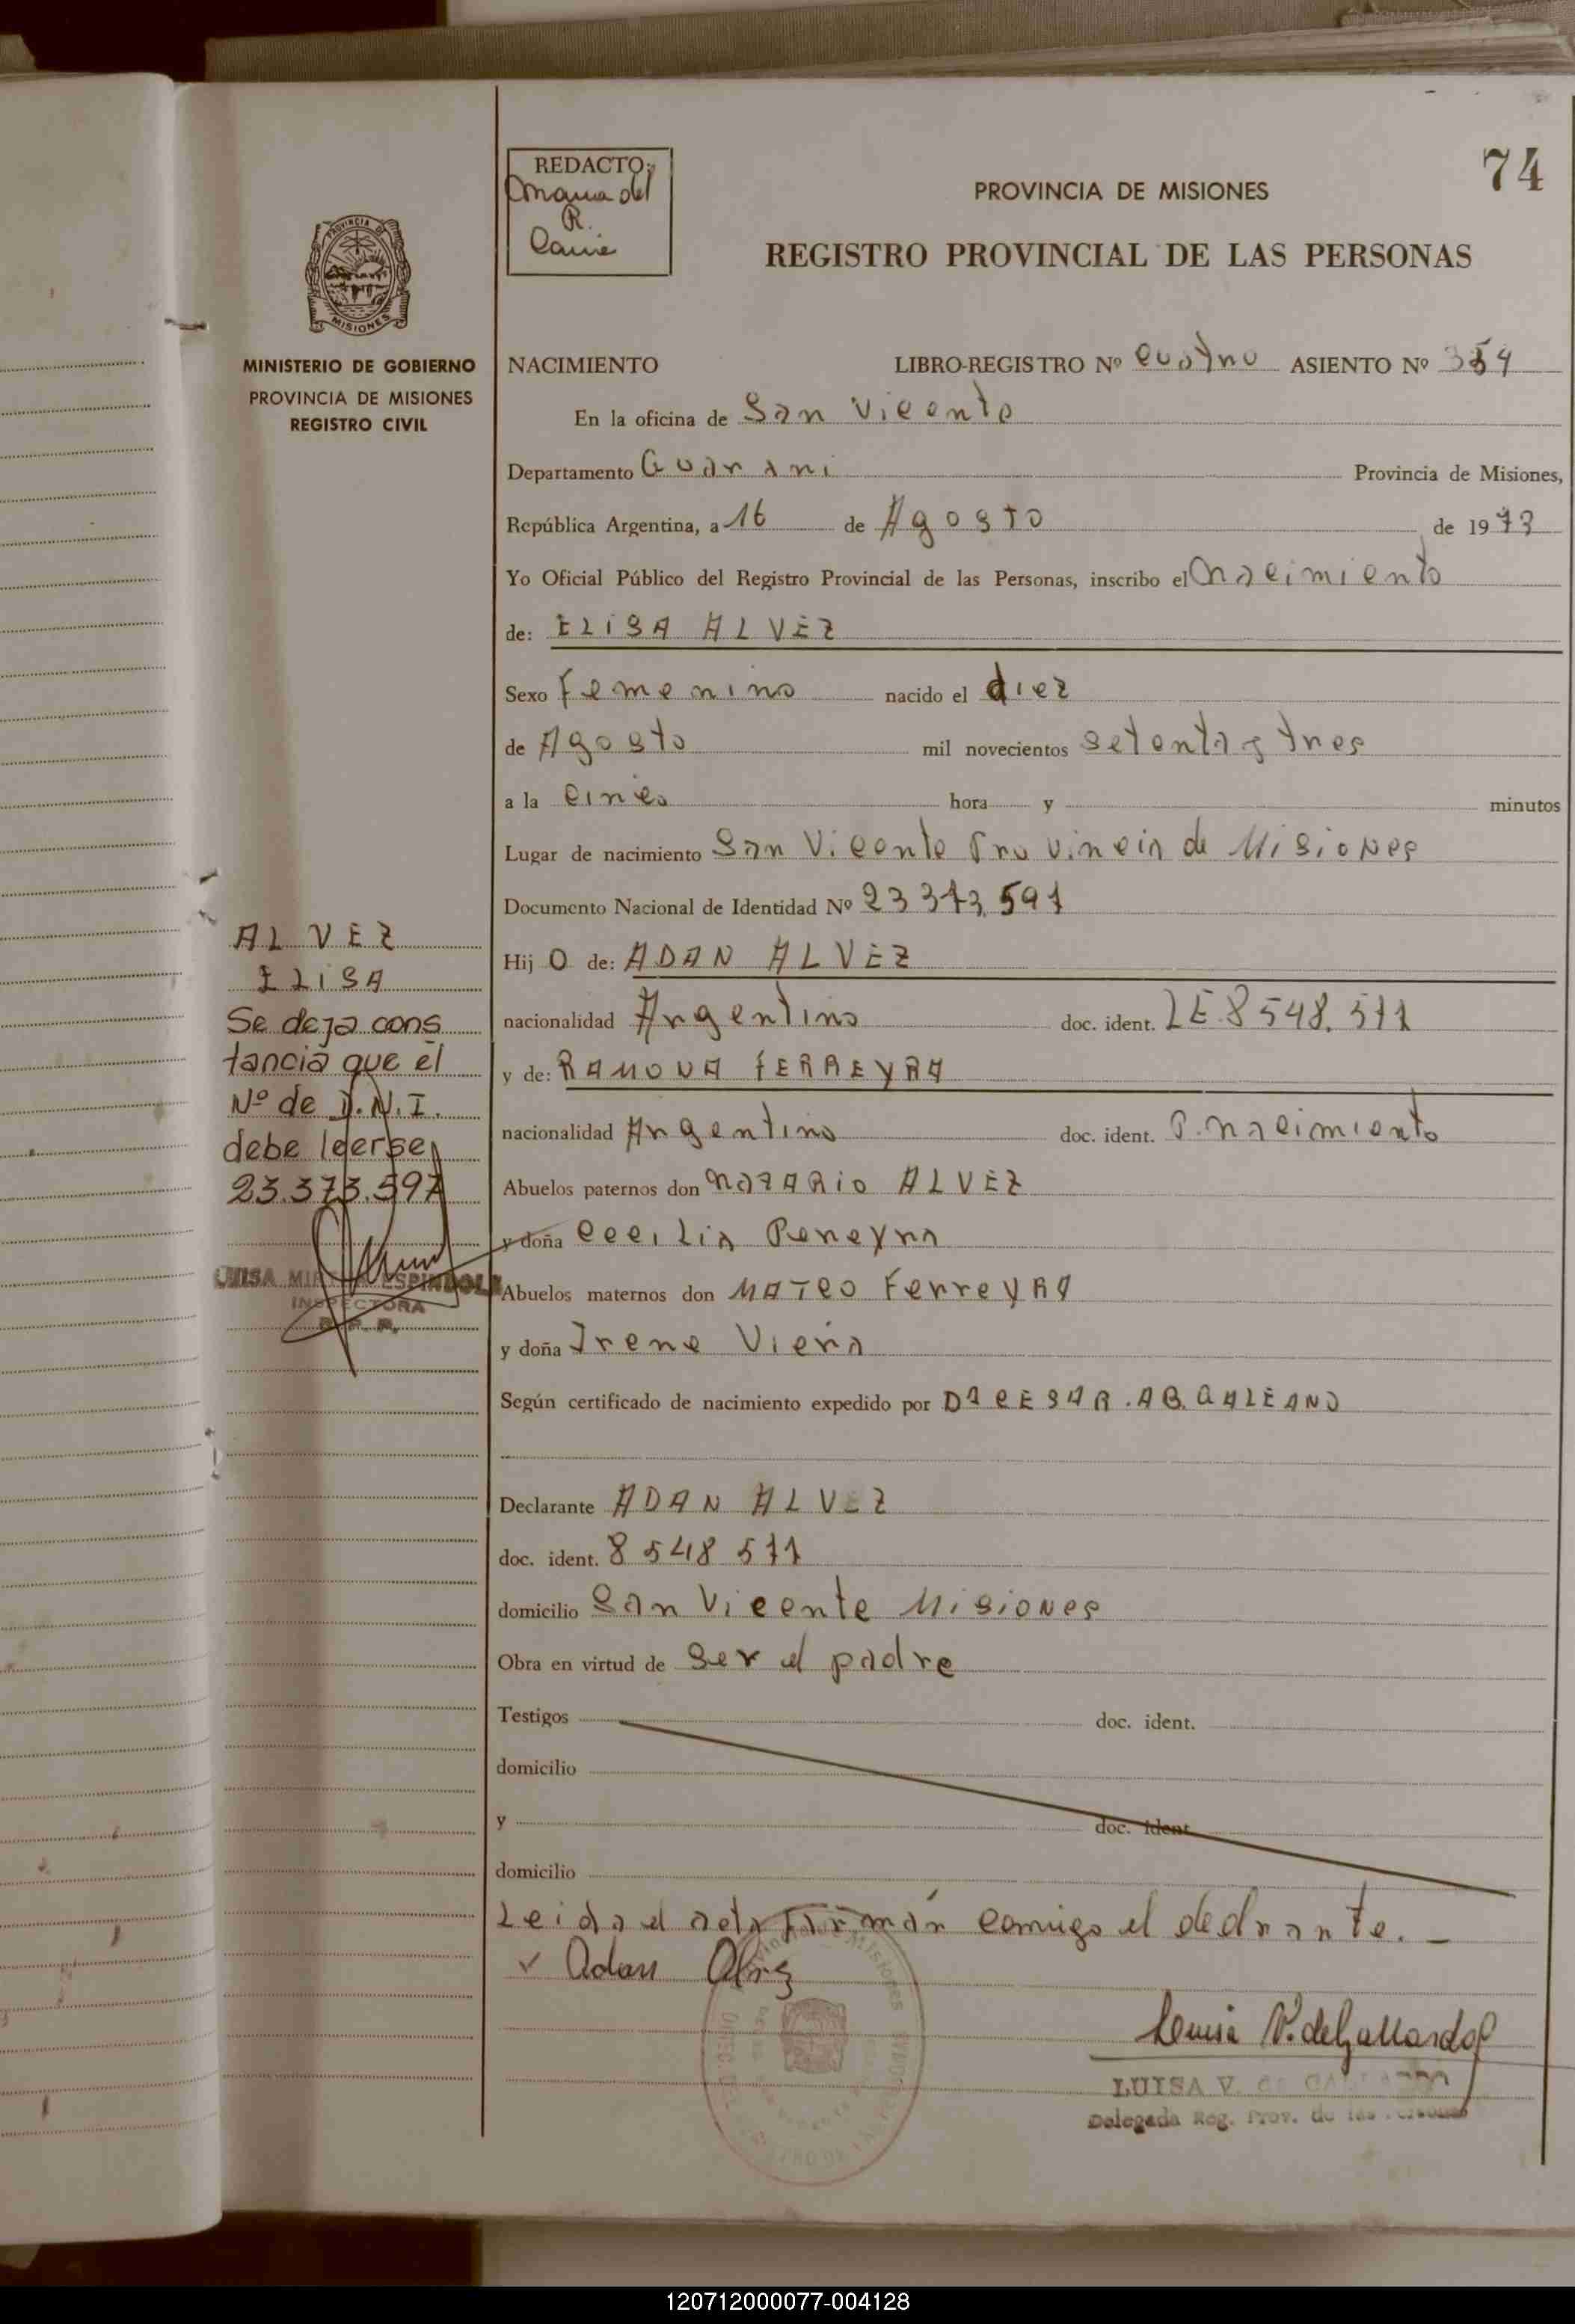 74
REDACTO:
R.
PROVINCIA DE MISIONES
REGISTRO PROVINCIAL DE LAS PERSONAS
PROVINCIA DE
MISIONES
MINISTERIO DE GOBIERNO
PROVINCIA DE MISIONES
REGISTRO CIVIL
NACIMIENTO LIBRO-REGISTRO Nº cuatro ASIENTO Nº
En la oficina de San Vicente
Departamento Guarani Provincia de Misiones,
República Argentina, a 16 de Agosto de 1973
Yo Oficial Público del Registro Provincial de las Personas, inscribo el nacimiento
de: ELISA ALVEZ
Sexo femenino nacido el diez
de Agosto mil novecientos setenta y tres
a la cinco hora y minutos
Lugar de nacimiento San Vicente Provincia de Misiones
Documento Nacional de Identidad Nº 23 373.597
Hij O de: ADAN ALVEZ
nacionalidad Argentino doc. ident. LE 8548.571
y de: RAMONA FERREYRA
nacionalidad Argentino doc. ident. P. nacimiento
Abuelos paternos don nazARio ALVEZ
y doña Cecilia Pereyra
Abuelos maternos don MATEO FerreYRA
y doña Irene Viera
Según certificado de nacimiento expedido por Dº CESAR .AB. GALEANO
Declarante ADAN ALVEZ
doc. ident. 8 548 571
domicilio San Vicente Misiones
Obra en virtud de ser el padre
Testigos doc. ident.
domicilio
y doc. ident.
domicilio
Leida el acta firmán comigo el declarante. —
Adan Alvez
Luisa V. de Gallardo
LUISA V. de GALLARDO
Delegada Reg. Prov. de las Personas
ALVEZ
ELISA
Se deja cons
tancia que el
Nº de D.N.I.
debe leerse
23.373.597
LUISA ESPINDOLA
INSPECTORA
R. P. P.
120712000077-004128